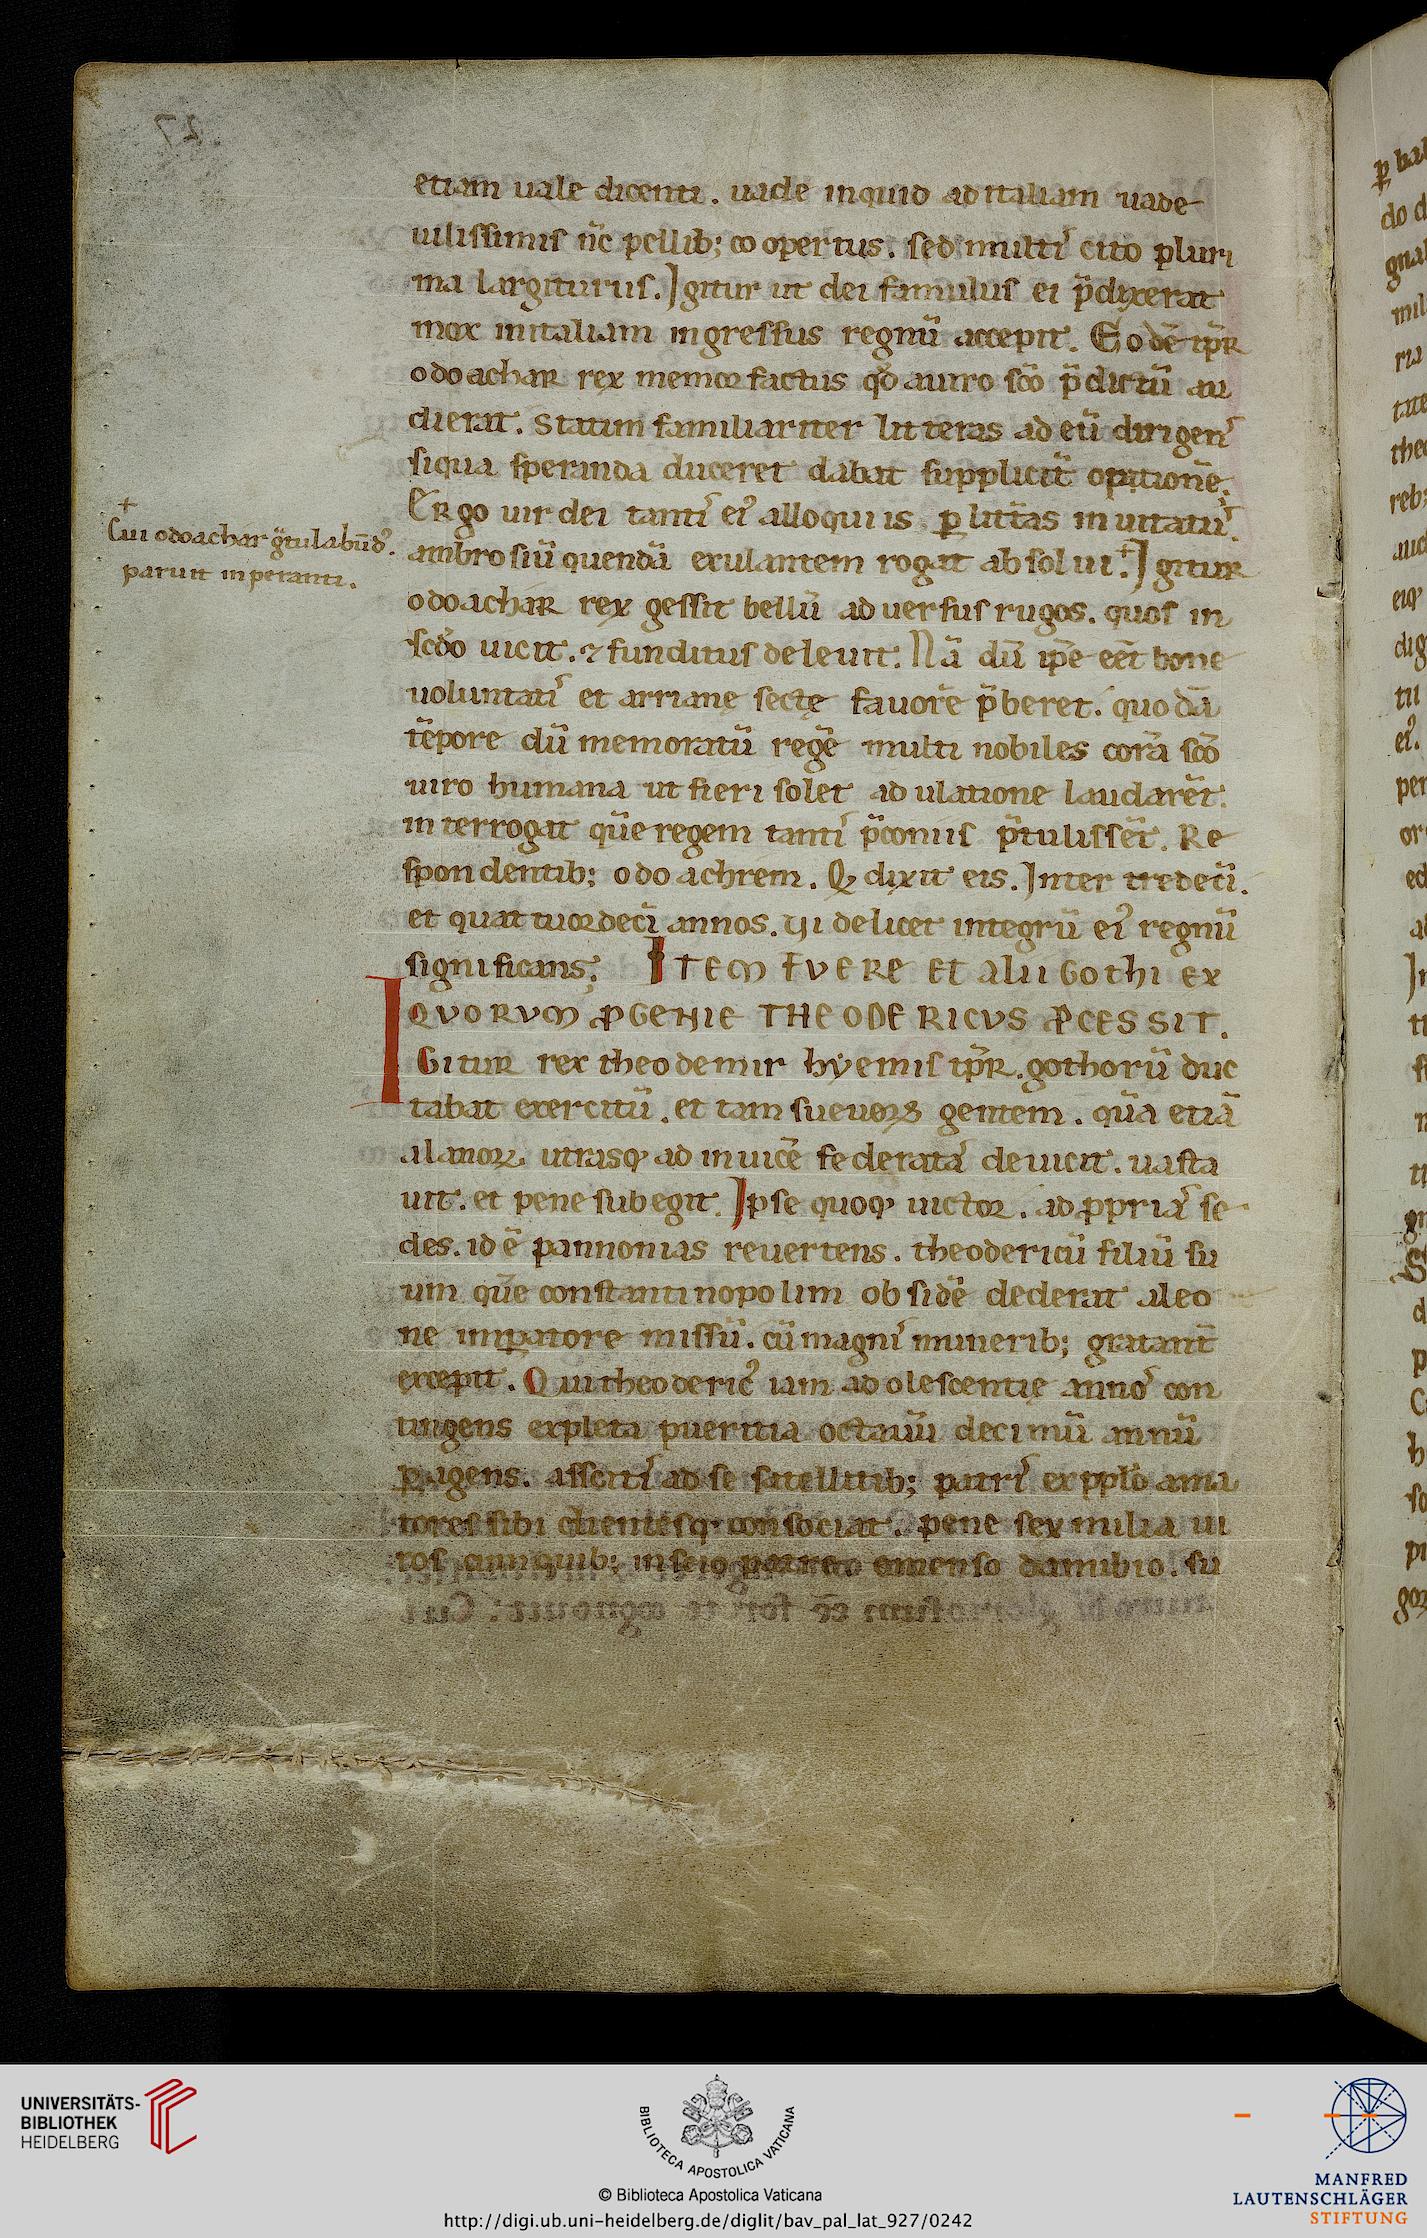 etiam uale dicenti. uade inquid ad italiam uade
uilissimis nc̄ pellib; coopertus. sed multı᷒ cito pluri
ma largiturus. Igitur ut dei famulus ei p̄dixerat
mox initaliam ingressus regnū accepit. Eodē tp̄r
odoachar rex memor factus qđ auiro sc̄o p̄dictū au
dierat. Statim familiariter litteras ad eū dirigen᷒
siqua speranda duceret dabat supplicit̄ optionē.
Ergo uir dei tantı᷒ eı᷒ alloquiis ꝑ litt̄as inuitatu᷒.
ambrosiū quendā exulantem rogat absolui.+ Igitur
odoachar rex gessit bellū aduersus rugos. quos in
sc̄do uicit. ⁊ funditus deleuit. Nā dū ip̄e eēt bone
uoluntatı᷒ et arrianę sectę fauorē p̄beret. quodā
tēpore dū memoratū regē multi nobiles corā sc̄o
uiro humana ut fieri solet adulatione laudarēt.
interrogat quē regem tantı᷒ p̄coniis p̄tulissēt. Re
spondentib; odoachrem. Q dixit eis. Inter tredecī.
et quattuordecī annos. Videlicet integrū eı᷒ regnū
significans; ITEM FVERE Et alii Gothi ex
QVORVM ꝓGENIE THEODERICVS ꝓCESSIT.
IGitur rex theodemir hyemis tp̄r. gothorū duc
tabat exercitū. et tam sueuoꝝ gentem. quā etiā
alanoꝝ utrasq; ad inuicē federata᷒ deuicit. uasta
uit. et pene subegit. Ipse quoq; uictor. ad ꝓpria᷒ se
des. id ē pannonias reuertens. theodericū filiū su
um quē constantinopolim obsidē dederat aleo
ne imꝑatore missū. cū magnı᷒ munerib; gratant̄
excepit. Qui theoderic᷒ iam adolescentię anno᷒ con
tingens expleta pueritia octauū decimū annū
ꝑagens. ascitı᷒ ad se satellitib; patrı᷒ ex pplo̅ ama
tores sibi clientesq; consociat. pene sex milia ui
ros cum quib; inscio patre emenso danubio. su
+
Cui odoachar gr̄tulabūd᷒.
paruit inperanti.
27
UNIVERSITÄTS-
BIBLIOTHEK
HEIDELBERG
BIBLIOTECA APOSTOLICA VATICANA
© Biblioteca Apostolica Vaticana
http://digi.ub.uni-heidelberg.de/diglit/bav_pal_lat_927/0242
MANFRED
LAUTENSCHLÄGER
STIFTUNG